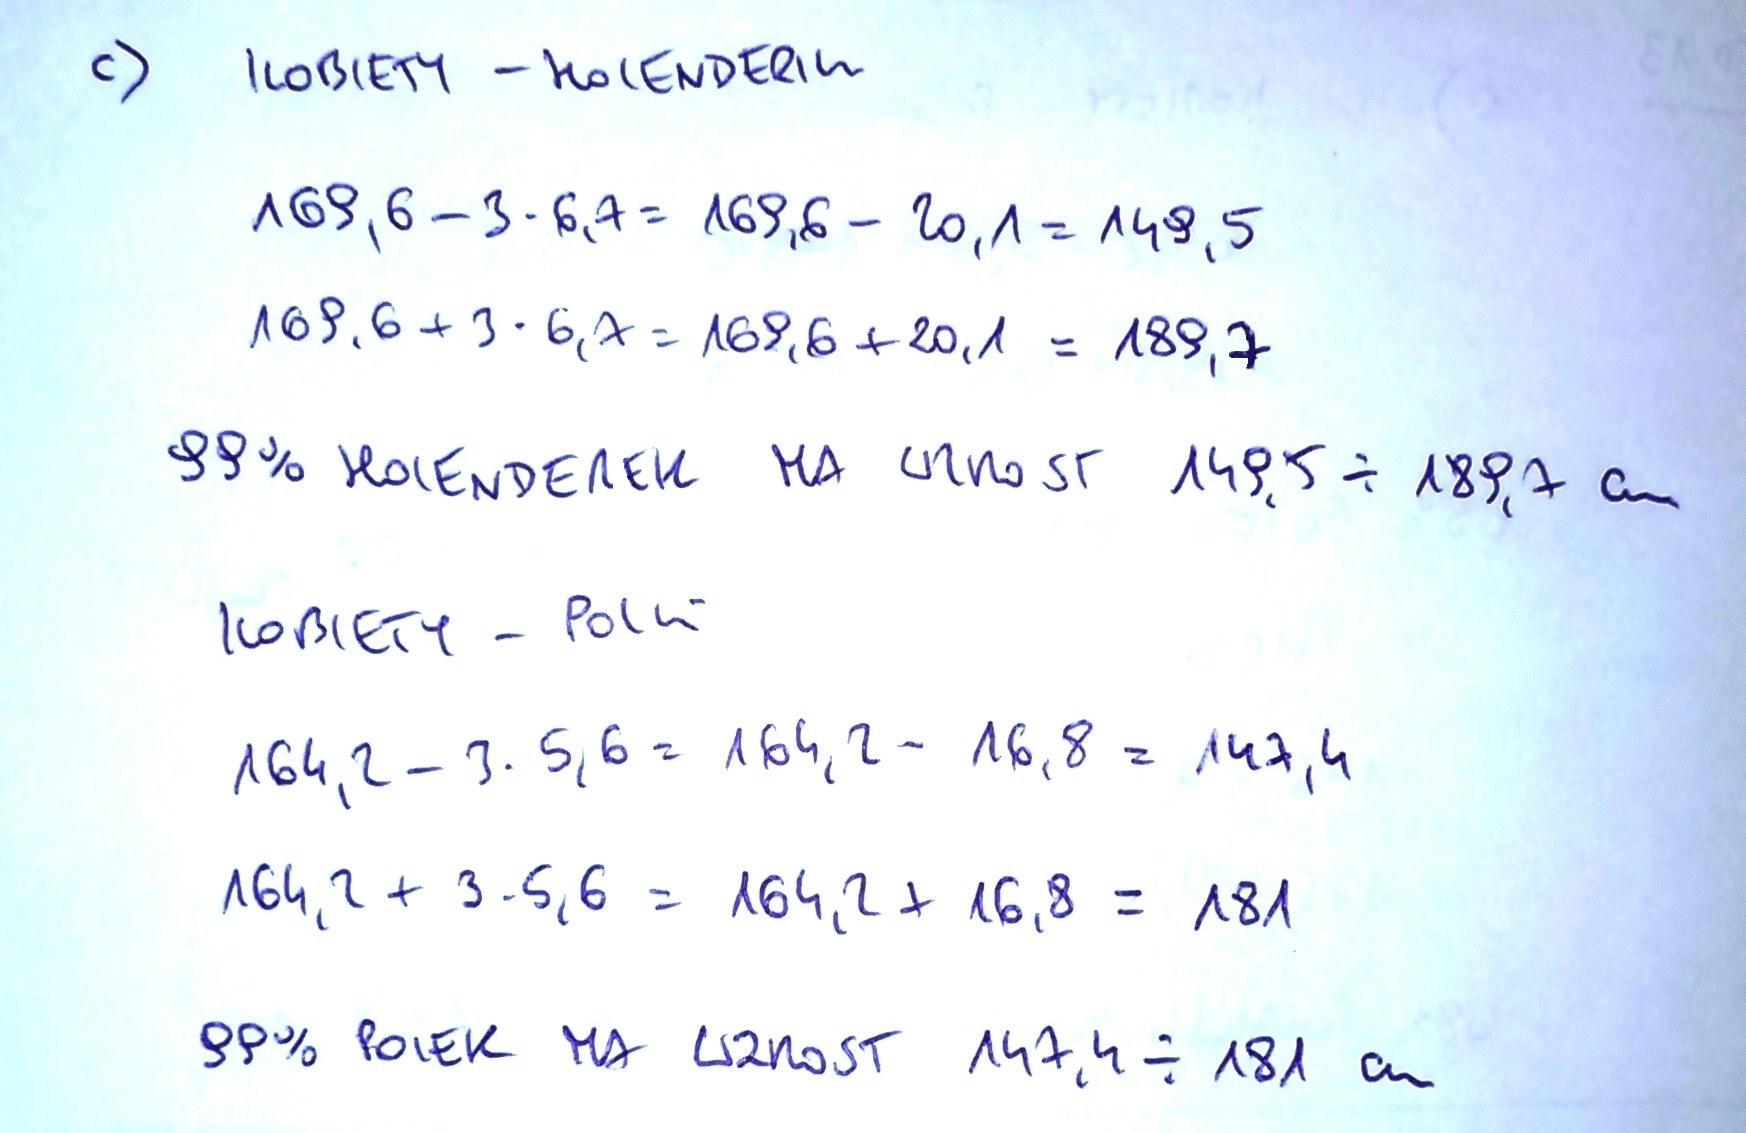 c) KOBIETY - HOLENDERKI
169,6 - 3 · 6,7 = 169,6 - 20,1 = 149,5
169,6 + 3 · 6,7 = 169,6 + 20,1 = 189,7
99% HOLENDEREK MA WZROST 149,5 ÷ 189,7 cm
KOBIETY - POLKI
164,2 - 3 · 5,6 = 164,2 - 16,8 = 147,4
164,2 + 3 · 5,6 = 164,2 + 16,8 = 181
99% POLEK MA WZROST 147,4 ÷ 181 cm